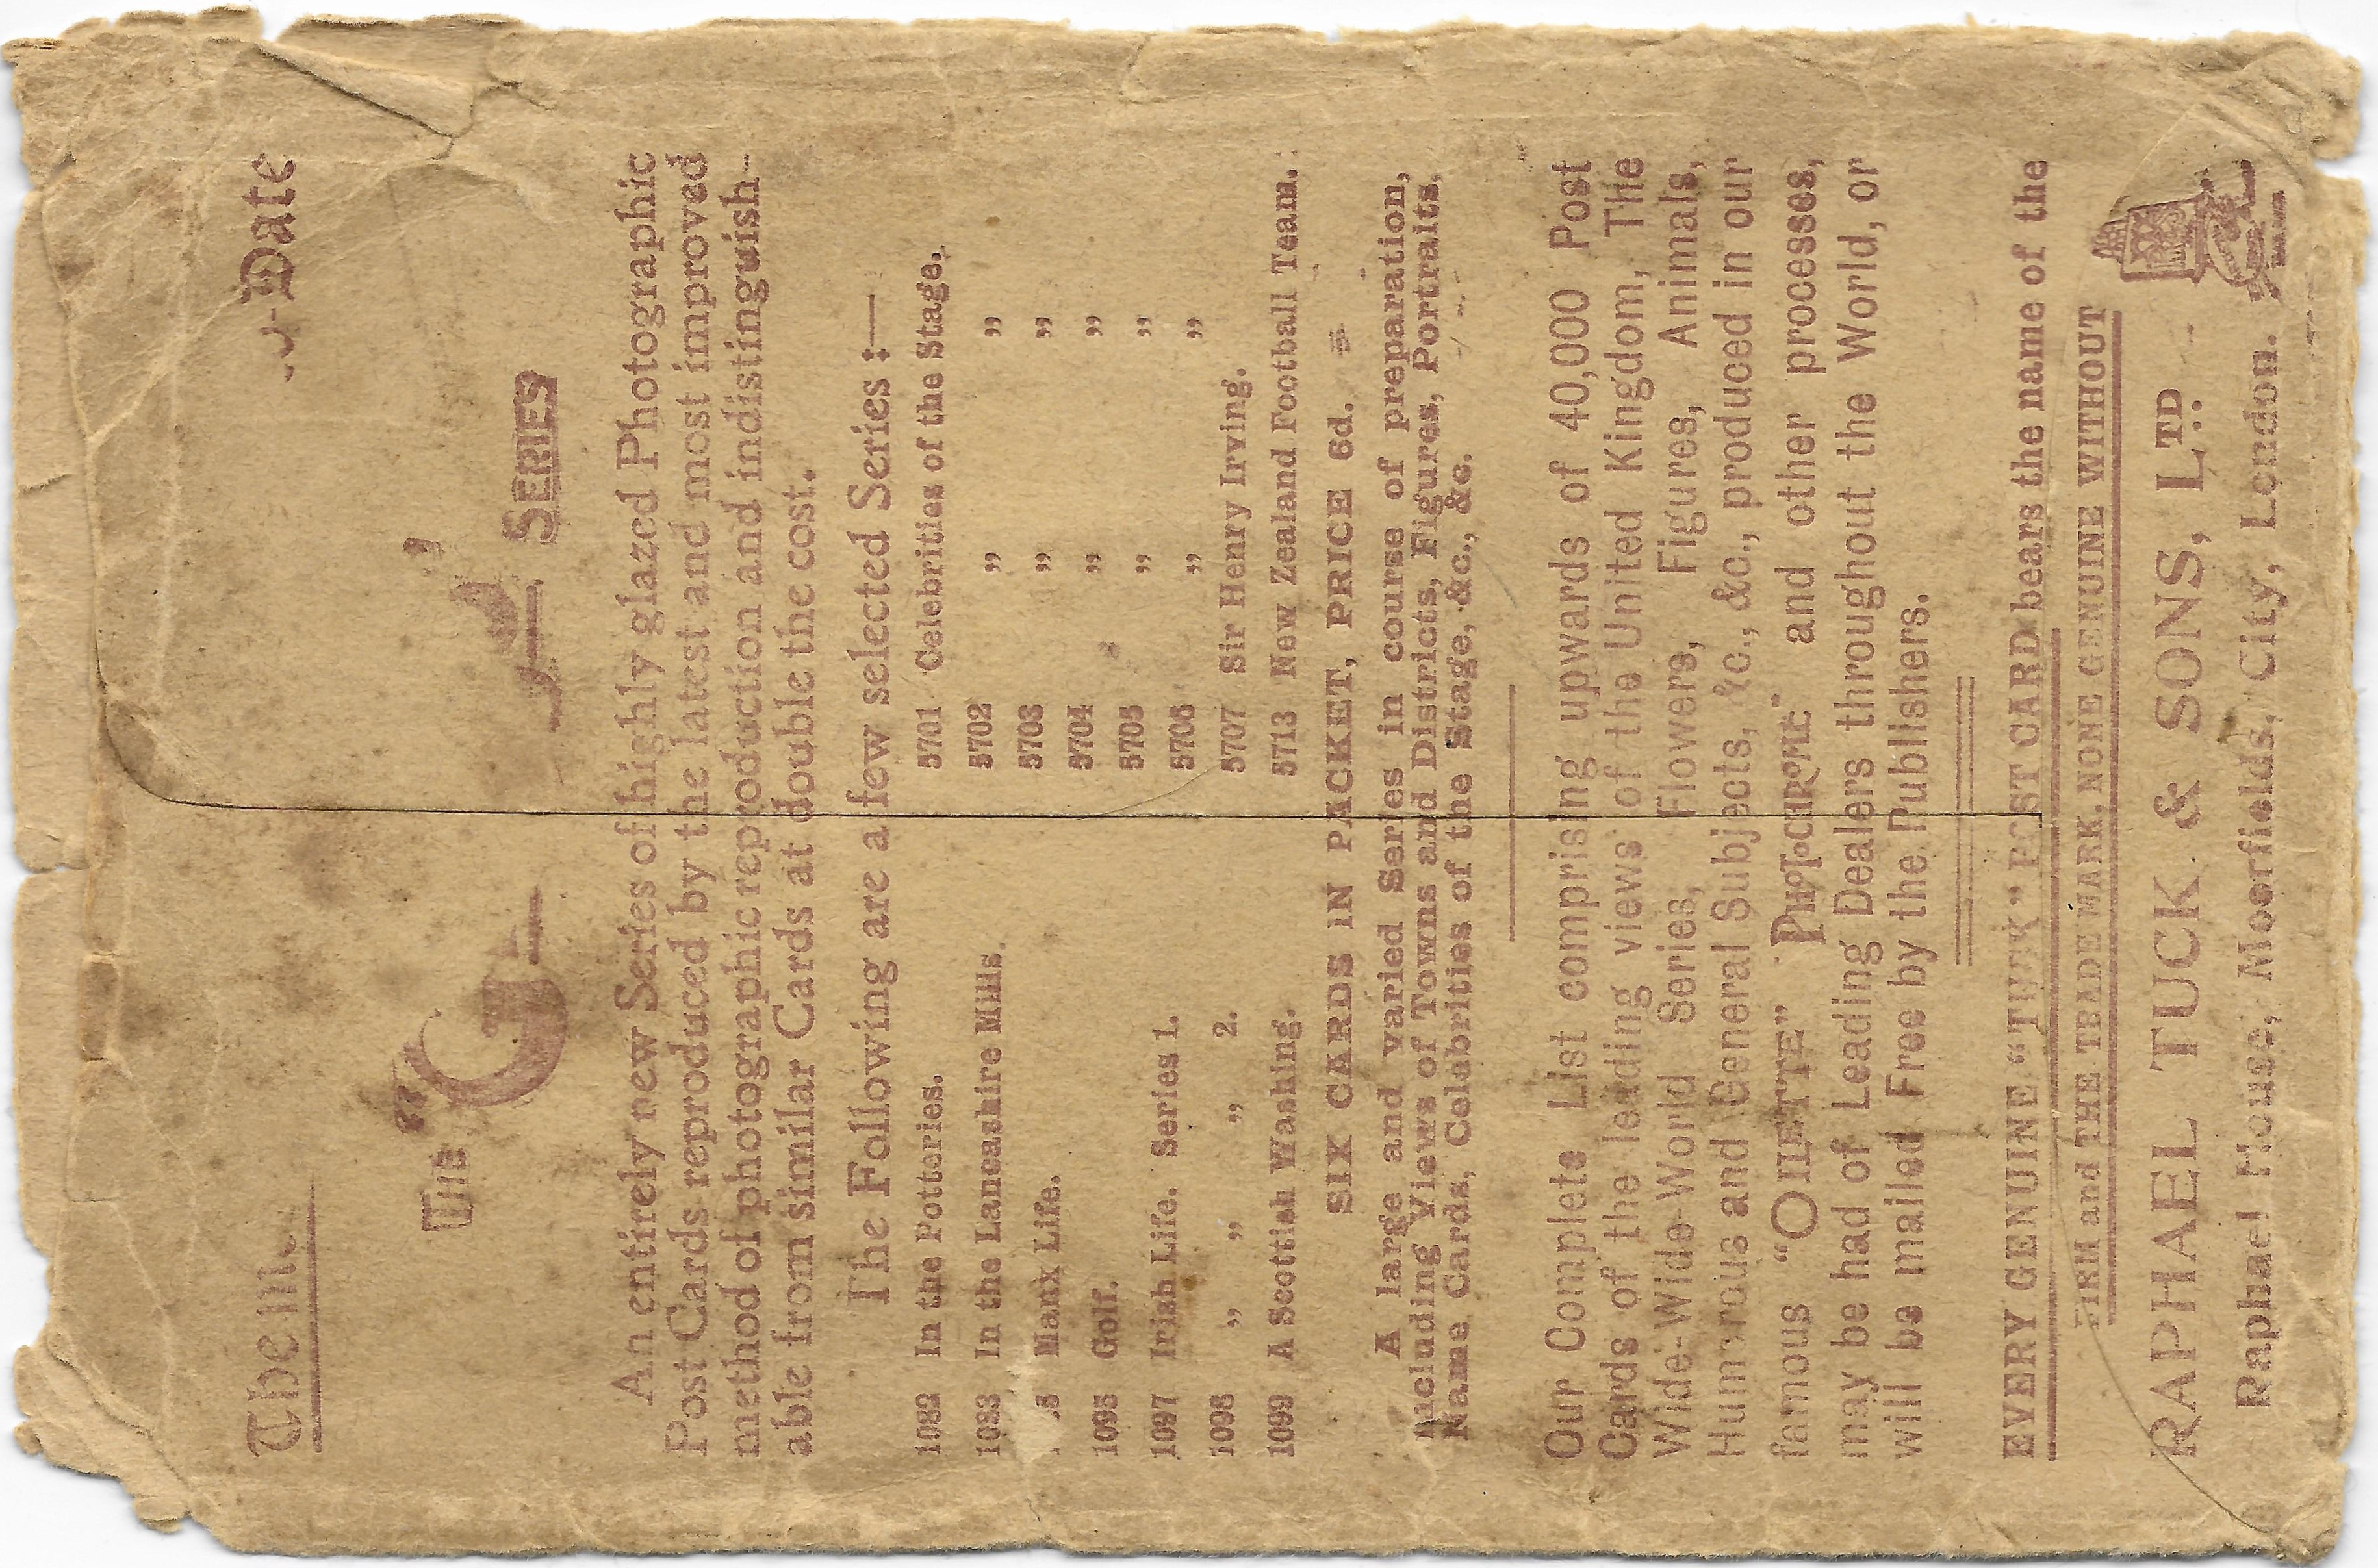 The
-Date
THE "G
" SERIES
An entirely new Series of highly glazed Photographic
Post Cards reproduced by the latest and most improved
method of photographic reproduction and indistinguish-
able from similar Cards at double the cost.
The Following are a few selected Series :—
1082 In the Potteries.
1083 In the Lancashire Mills.
Manx Life.
1095 Golf.
1097 Irish Life. Series 1.
1098 " " " 2.
1099 A Scottish Washing.
5701 Celebrities of the Stage.
5702 " "
5703 " "
5704 " "
5705 " "
5706 " "
5707 Sir Henry Irving.
5713 New Zealand Football Team.
SIX CARDS IN PACKET, PRICE 6d.
A large and varied Series in course of preparation,
including Views of Towns and Districts, Figures, Portraits,
Name Cards, Celebrities of the Stage, &c., &c.
Our Complete List comprising upwards of 40,000 Post
Cards of the leading views of the United Kingdom, The
Wide-Wide-World Series, Flowers, Figures, Animals,
Humorous and General Subjects, &c., &c., produced in our
famous "OILETTE" "PHOTOCHROME" and other processes,
may be had of Leading Dealers throughout the World, or
will be mailed Free by the Publishers.
EVERY GENUINE "TUCK" POST CARD bears the name of the
FIRM and THE TRADE MARK, NONE GENUINE WITHOUT
RAPHAEL TUCK & SONS, LTD.
Raphael House, Moorfields, City, London.